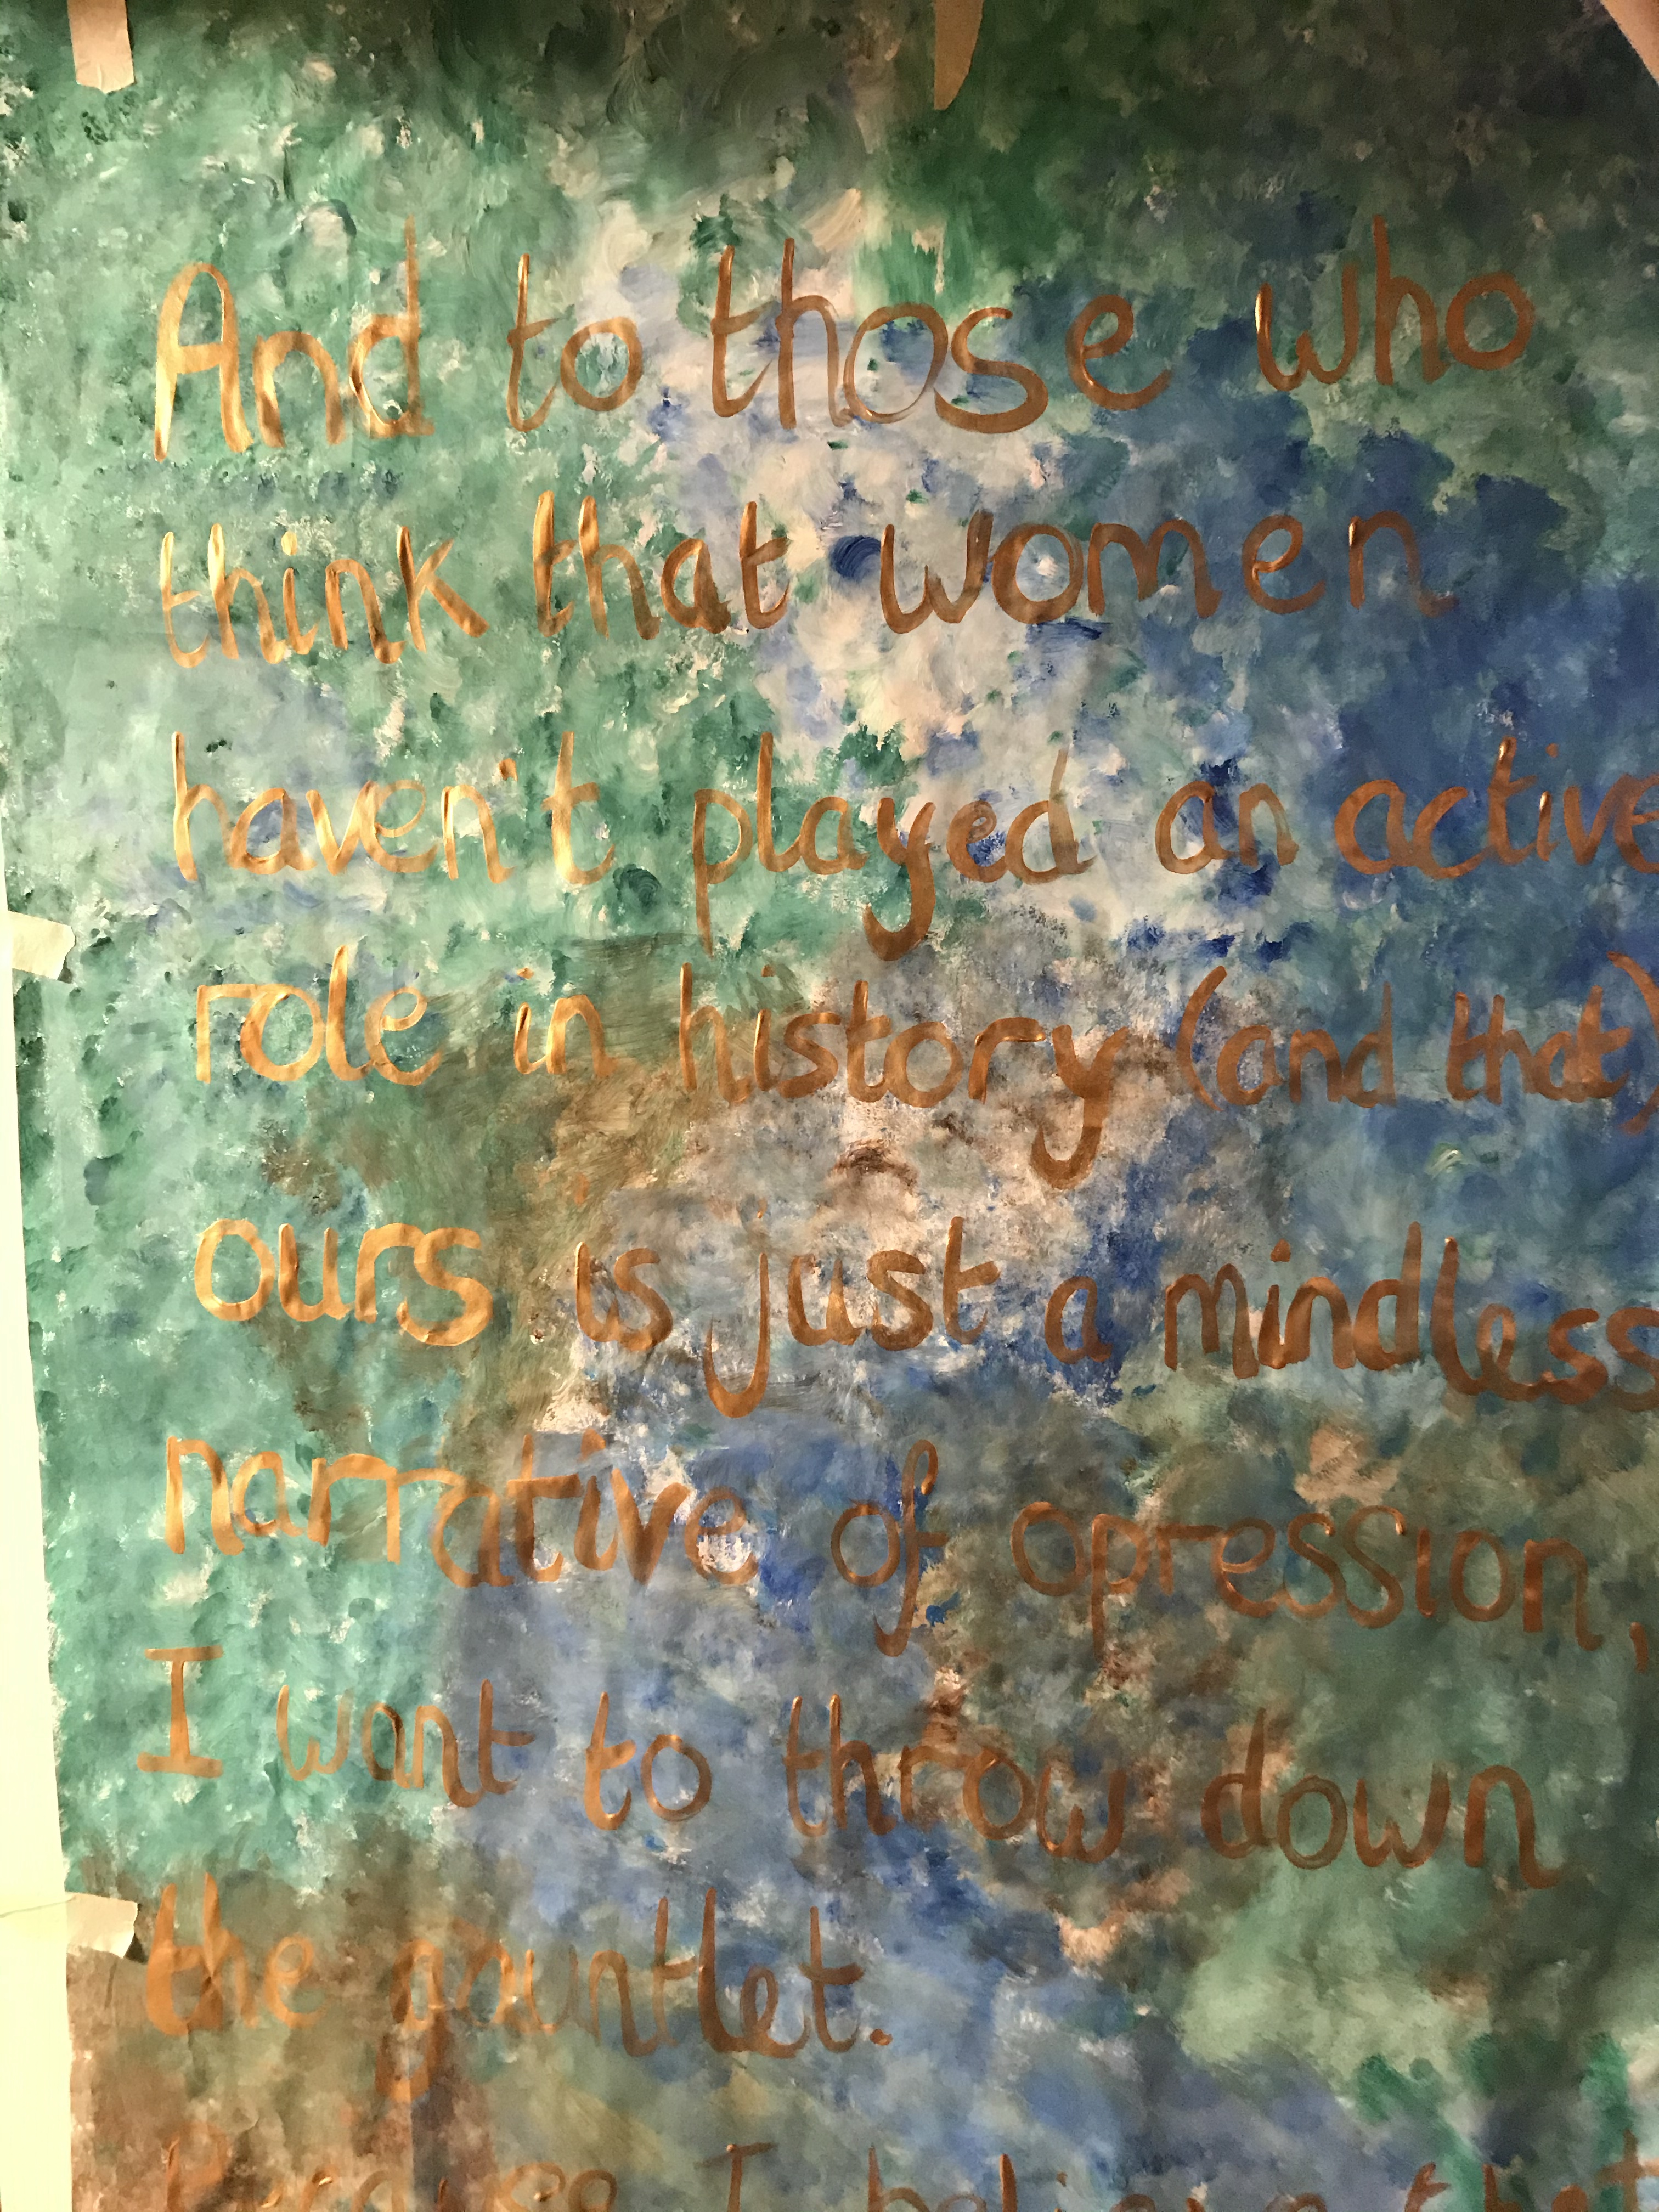 And to those who
think that women
haven't played an active
role in history (and that)
ours is just a mindless
narrative of opression,
I want to throw down
the gauntlet.
Because I believe that